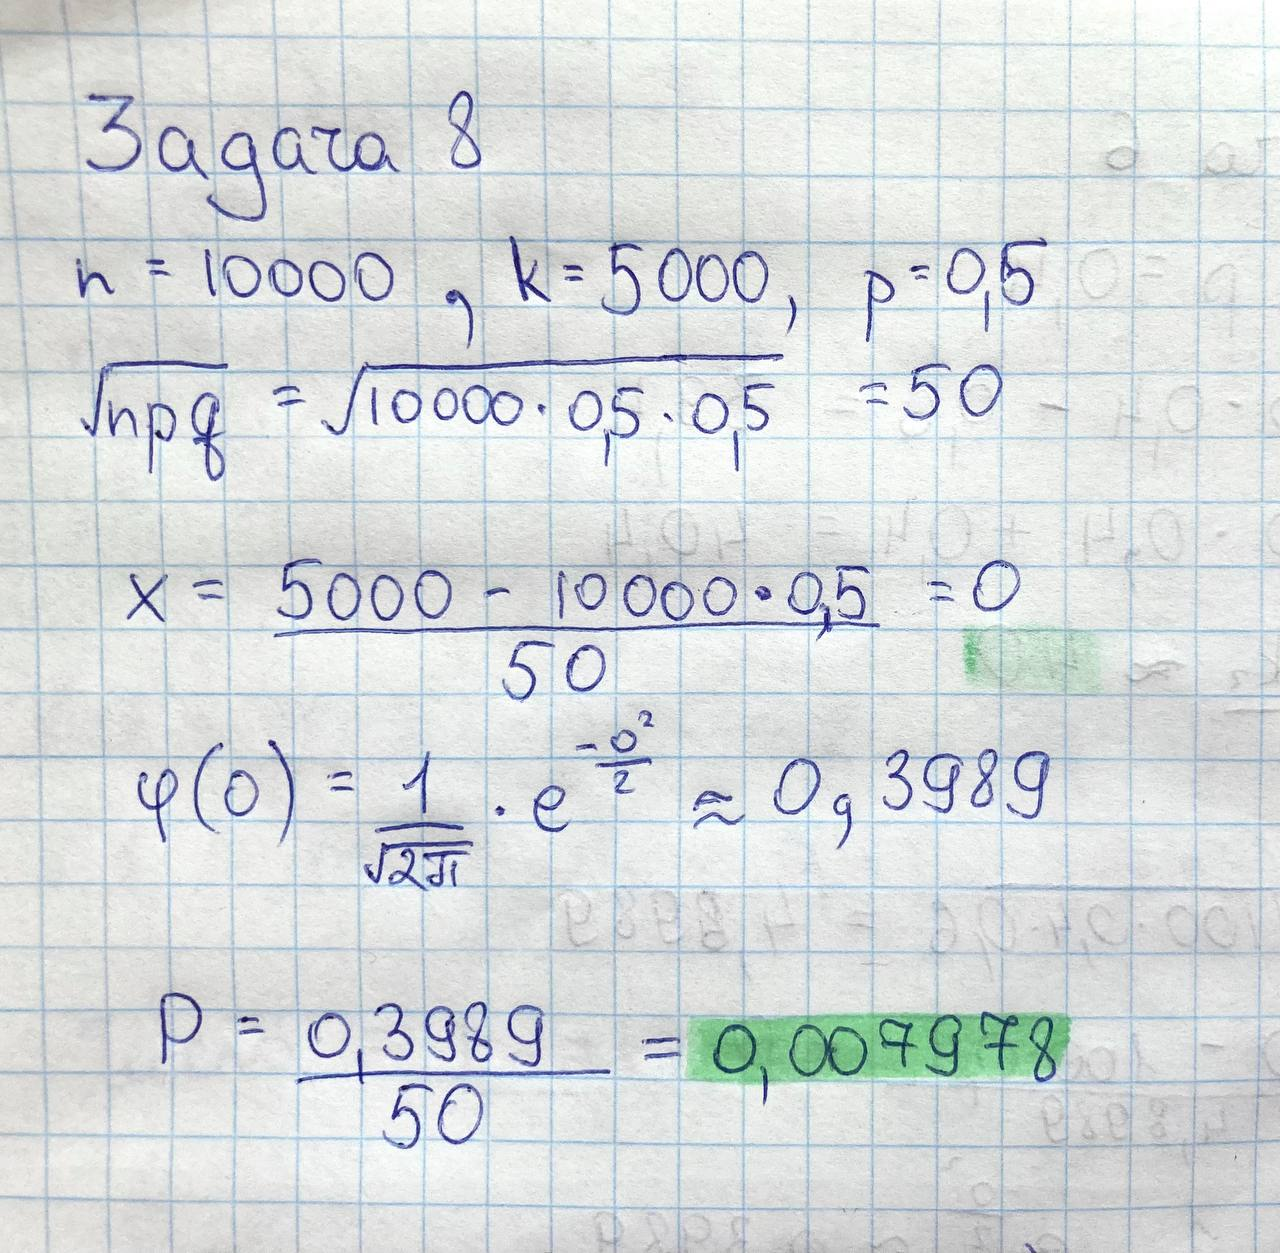 Задача 8
n = 10000, k = 5000, p = 0,5
√npq = √10000 · 0,5 · 0,5 = 50
x = (5000 - 10000 · 0,5) / 50 = 0
φ(0) = 1/√2π · e^(-0²/2) ≈ 0,3989
P = 0,3989 / 50 = 0,007978